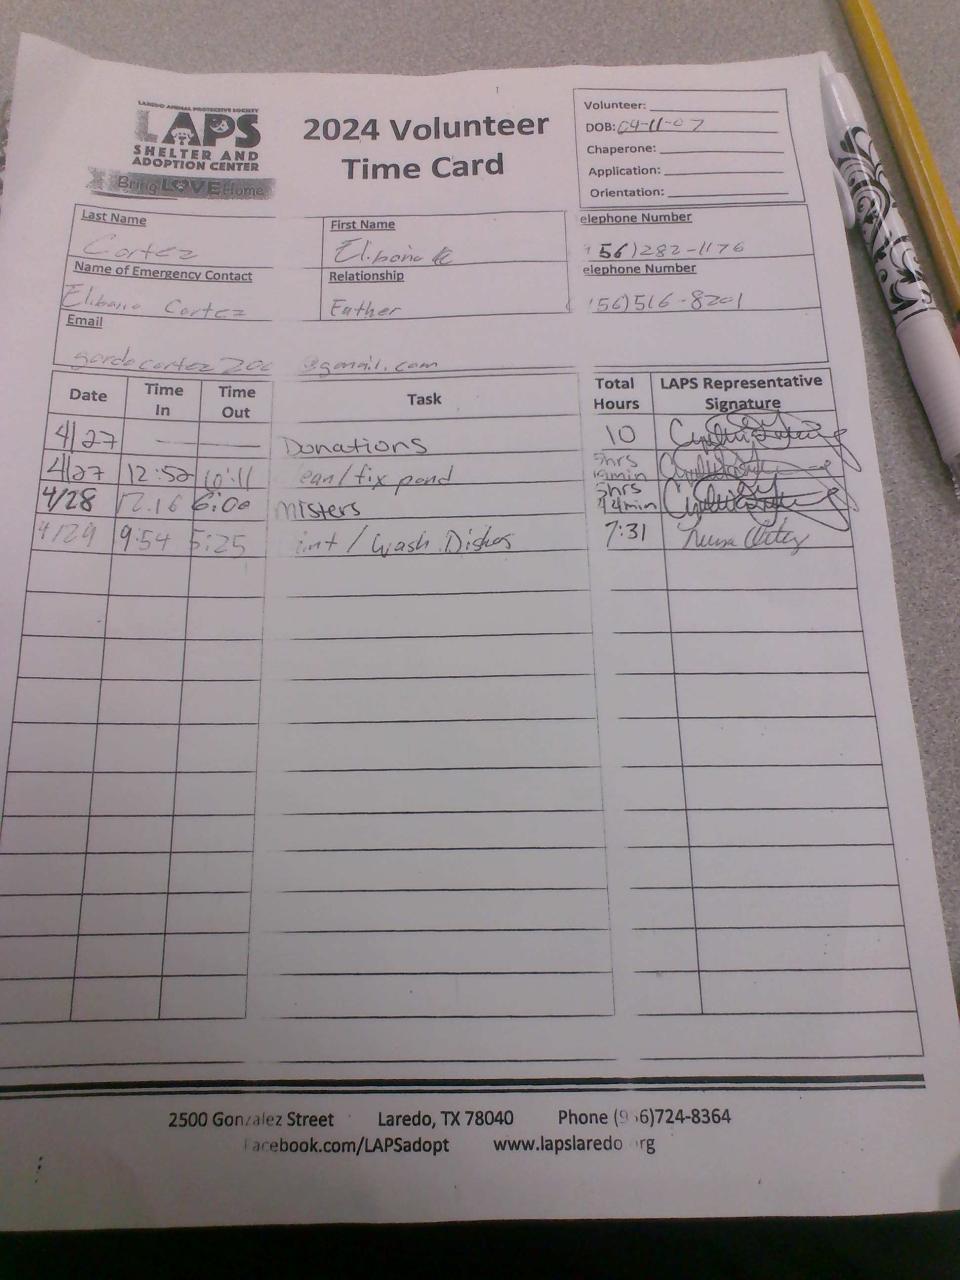 LAREDO ANIMAL PROTECTIVE SOCIETY
LAPS
SHELTER AND
ADOPTION CENTER
Bring LOVE Home
2024 Volunteer
Time Card
Volunteer:
DOB: 04-11-07
Chaperone:
Application:
Orientation:
Last Name First Name elephone Number
Cortez 56)282-1176
Name of Emergency Contact Relationship elephone Number
Cortez Father 56)516-8201
Email
@gmail.com
Date Time In Time Out Task Total Hours LAPS Representative Signature
4/27 Donations 10
4/27 12:52 ean/fix pond 5hrs
4/28 12:16 6:00 Misters 5hrs 44min
4/29 9:54 5:25 int / Wash Dishes 7:31
2500 Gonzalez Street Laredo, TX 78040 Phone (9 6)724-8364
acebook.com/LAPSadopt www.lapslaredo rg